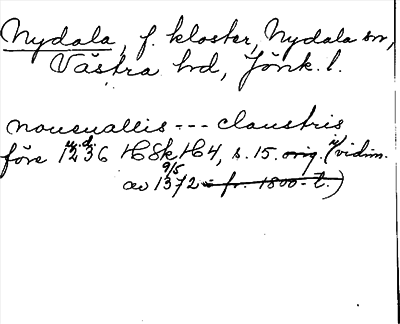 Nydala, f. kloster, Nydala sn,
Västra hd, Jönk. l.
noueuallis --- claustris
u.d.
före 1236 HSkH4, s. 15. orig. (vidim.
9/5
av 1372 = fr. 1800-t.)